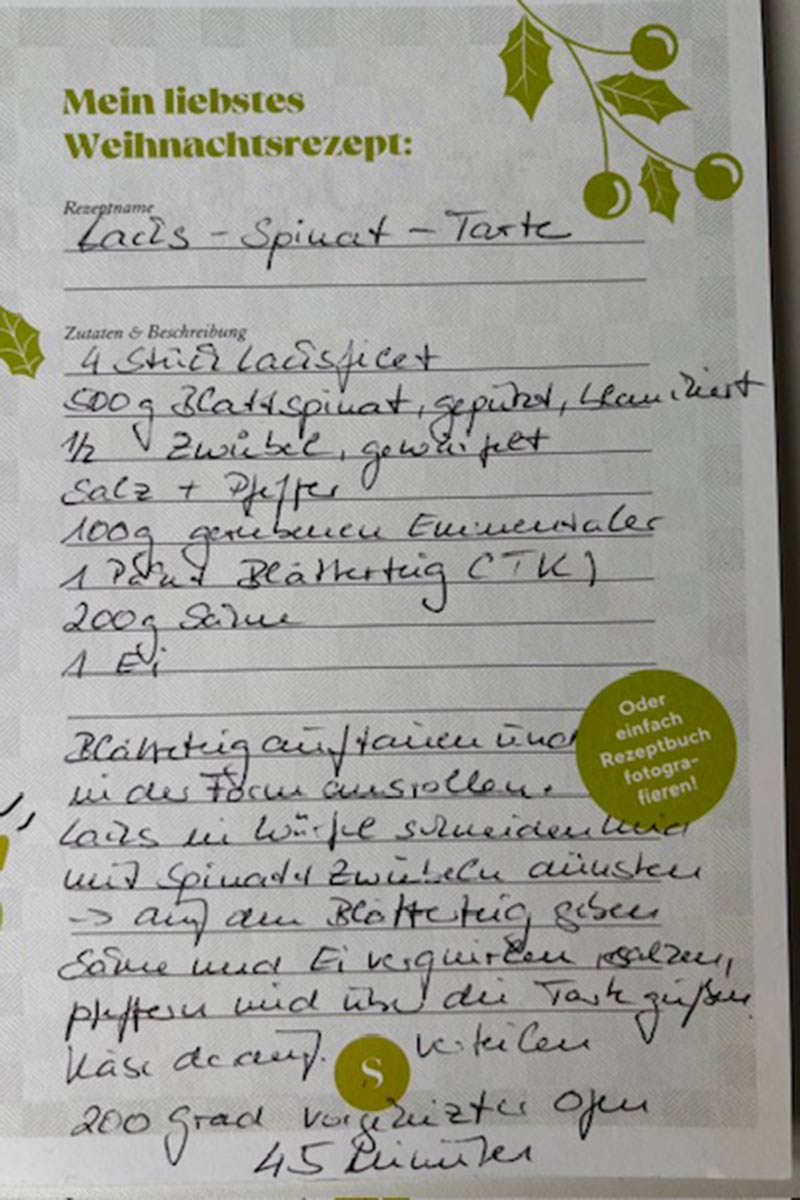 Mein liebstes
Weihnachtsrezept:
Rezeptname
Lachs - Spinat - Tarte
Zutaten & Beschreibung
4 Stück Lachsfilet
500g Blattspinat, geputzt, blanchiert
1/2 Zwiebel, gewürfelt
Salz + Pfeffer
100g geriebenen Emmentaler
1 Paket Blätterteig (TK)
200g Sahne
1 Ei
Blätterteig auftauen und
in der Form ausrollen.
Lachs in Würfel schneiden und
mit Spinat + Zwiebeln dünsten
-> auf den Blätterteig geben
Sahne und Ei verquirlen, salzen,
pfeffern und über die Tarte gießen.
Käse darauf verteilen
200 Grad vorgeheizter Ofen
45 Minuten
Oder
einfach
Rezeptbuch
fotogra-
fieren!
S